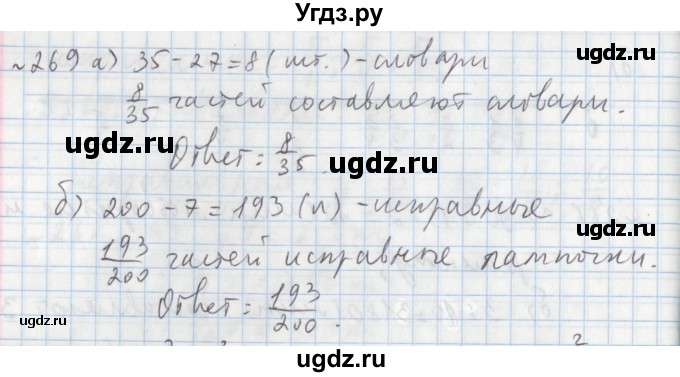 Угдз.ру
№269 а) 35 - 27 = 8 (шт.) - словари
8/35 частей составляют словари.
Ответ: 8/35.
б) 200 - 7 = 193 (л) - исправные
193/200 частей исправные лампочки.
Ответ: 193/200.
ugdz.ru
ugdz.ru
ugdz.ru
ugdz.ru
ugdz.ru
ugdz.ru
ugdz.ru
ugdz.ru
ugdz.ru